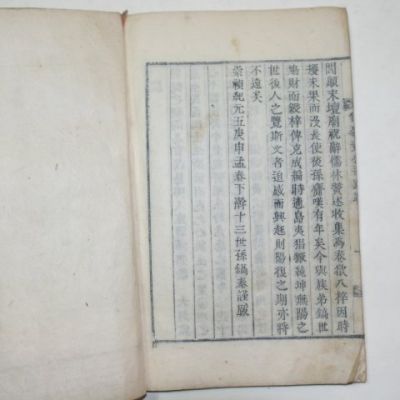 閣顚末壇廟祝辭儒林贊述收集爲卷欲入梓因時
擾未果而沒長使後孫齎嘆有年矣今與族弟鎬世
鳩財而鋟梓俾克成編時適島夷猖獗乾坤無陽之
世後人之覽斯文者追感而興起則陽復之期亦將
不遠矣
崇禎紀元五庚申孟春下澣十三世孫鎬泰謹跋